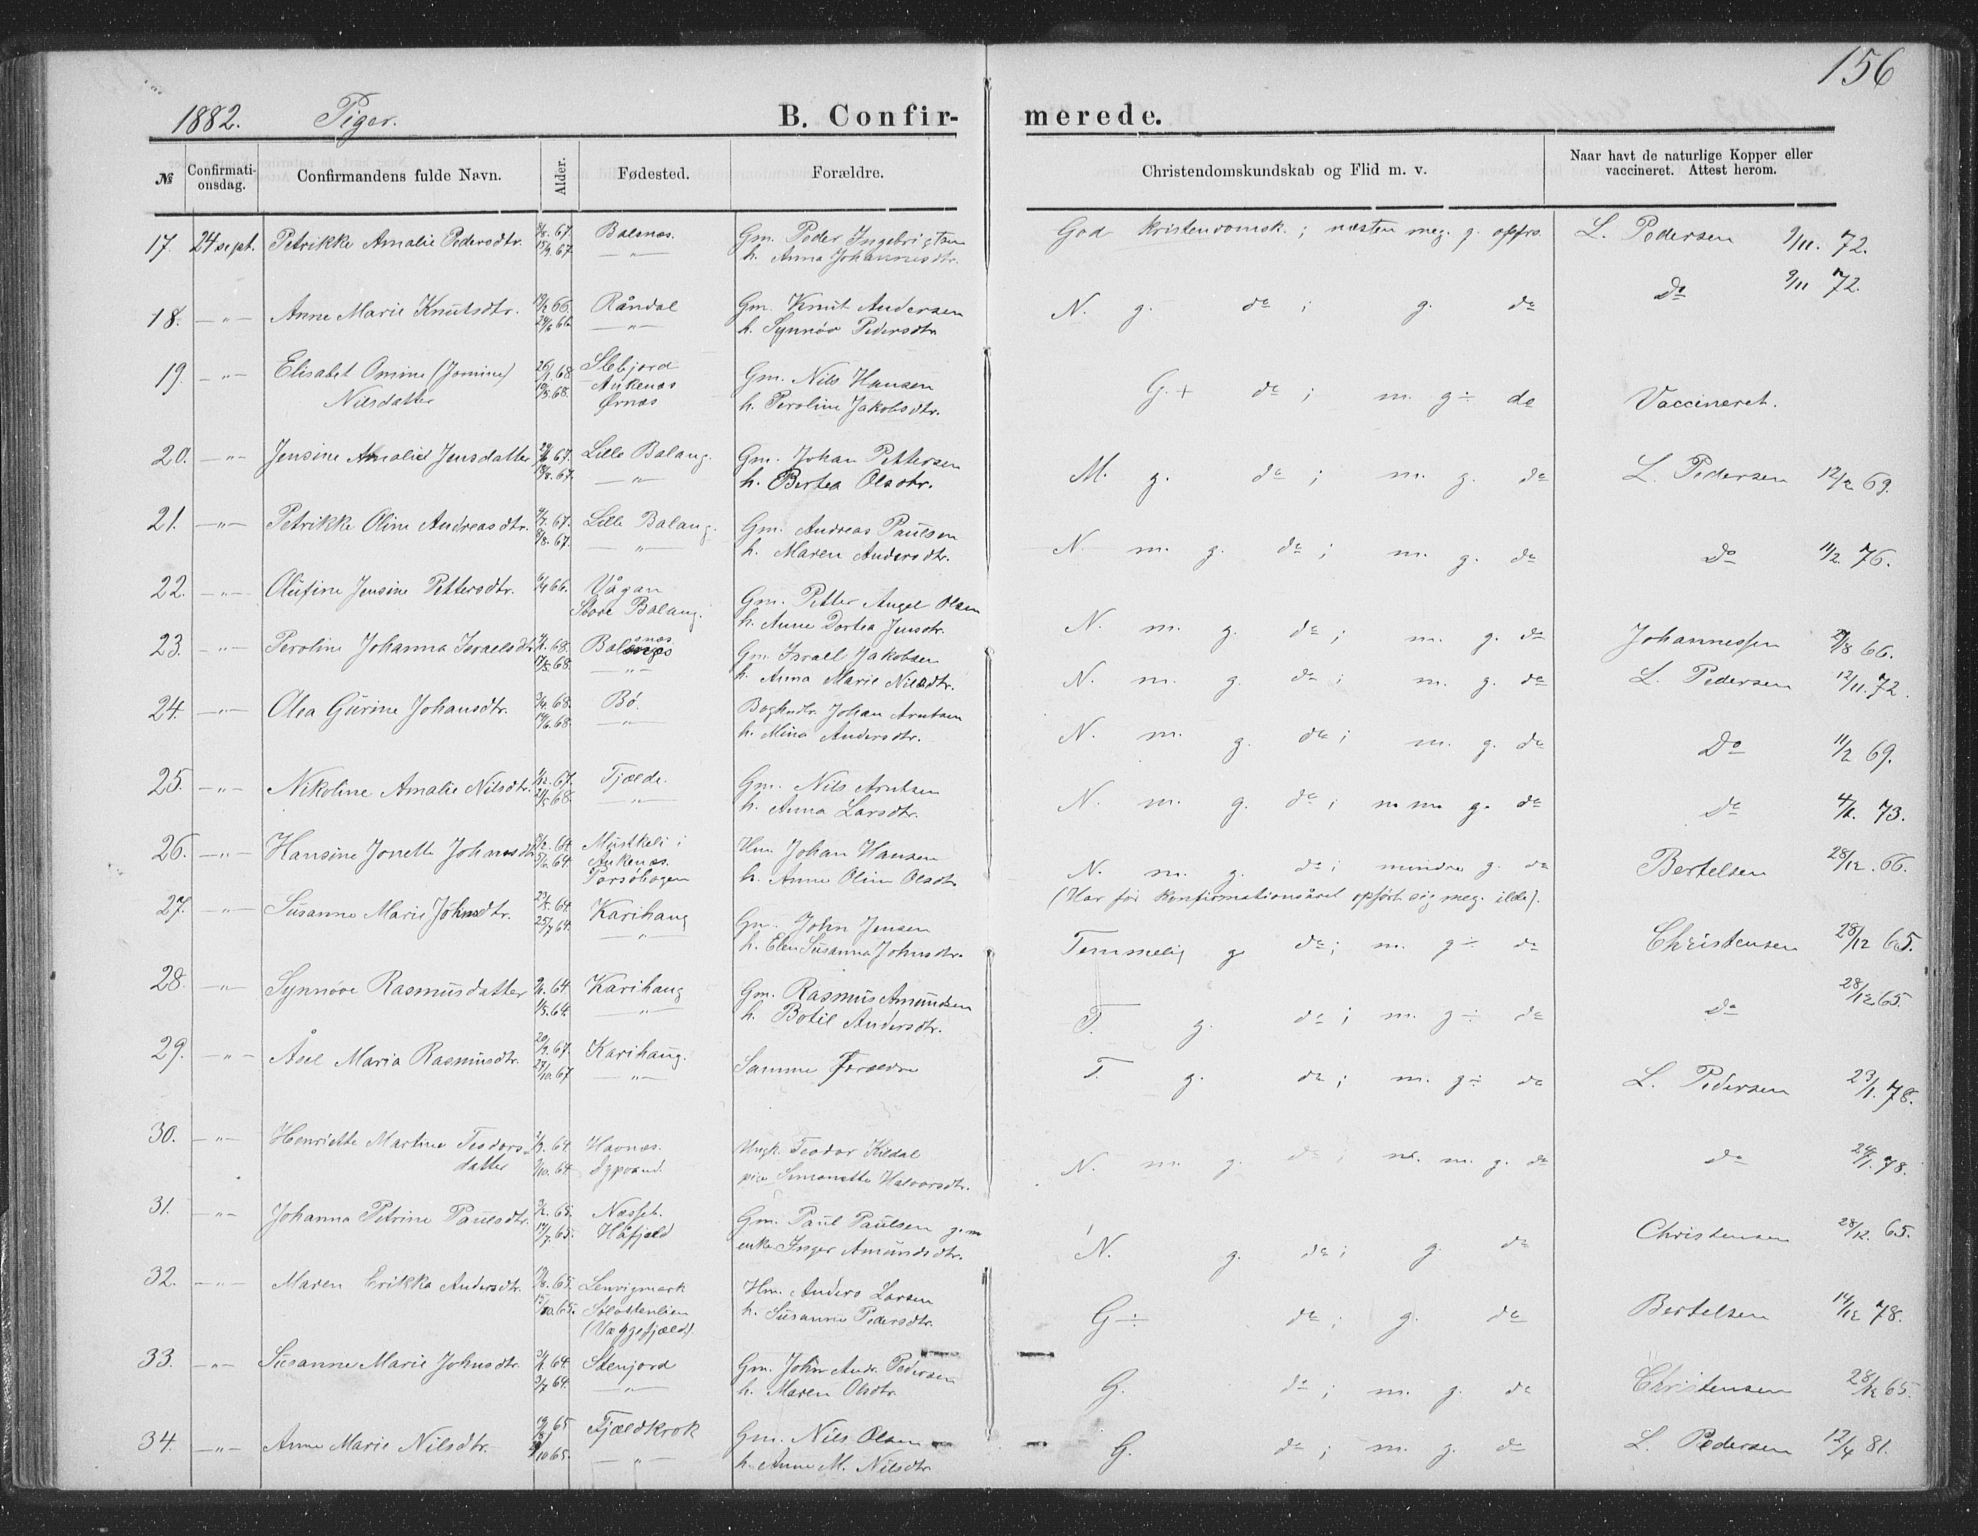 156
1882. Piger. B. Confirmerede.
№ Confirmationsdag. Confirmandens fulde Navn. Alder. Fødested. Forældre. Christendomskundskab og Flid m. v. Naar havt de naturlige Kopper eller vaccineret. Attest herom.
17. 24 sept. Petrikke Amalie Pedersdtr. Balsnæs. Gm. Peder Ingebrigtsen God kristendomsk.; næsten meg. g. opførs. L. Pedersen 9/11. 72.
15/9 67. —"— h. Anna Johannesdtr.
18. —"— Anne Marie Knutsdtr. Råndal Gm. Knut Andersen N. g. do; g. do Do 9/11 72.
—"— h. Synnøv Pedersdtr.
19. —"— Elisabet Omine (Jomine) Slebjord Gm. Nils Hansen G.+ do; m. g÷ do Vaccineret.
Nilsdatter Aukenæs
Ørnæs h. Peroline Jakobsdtr.
20. —"— Jensine Amalie Jensdatter Lille Balang. Gm. Johan Pettersen M. g. do; m. g. do L. Pedersen 12/2 69.
—"— h. Bertea Olsdtr.
21. —"— Petrikke Oline Andreasdtr. Lille Balang. Gm. Andreas Paulsen N. m. g. do; m. g. do Do 11/2. 76.
—"— h. Maren Andersdtr.
22. —"— Olufine Jensine Pettersdtr. Vågan Gm. Petter Angel Olsen N. m. g. do; m. g. do Johannessen 66.
Store Balang. h. Anne Dortea Jensdtr.
23. —"— Peroline Johanna Israelsdtr. Balsnæs Gm. Israel Jakobsen N. m. g. do; m. g. do L. Pedersen 12/11. 72.
—"— h. Anna Marie Nilsdtr.
24. —"— Olea Gurine Johansdtr. Bø. Johan Arntsen N. m. g. do; m. g. do Do 11/2 69.
—"— h. Mina Andersdtr.
25. —"— Nikoline Amalie Nilsdtr. Tjælde. Gm. Nils Arntsen N. m. g. do; g. do do 73.
—"— h. Anna Larsdtr.
26. —"— Hansine Jonette Johansdtr. i Hm Johan Hansen N. m. g. do; mindre g. do Bertelsen 28/12. 66.
Aukenæs. h. Anne Oline Olsdtr. (Har før konfirmationsåret opført sig meg. ilde).
27. —"— Susanne Marie Johnsdtr. Karihaug Gm. John Jensen Temmelig g do; m. g÷ do Christensen 28/12 65.
25/7 64. —"— h. Elen Susanna Johnsdtr.
28. —"— Synnøve Rasmusdatter Karihaug Gm. Rasmus Amundsen T. g. do; m. g÷ do do 28/12 65.
—"— h. Botil Andersdtr.
29. —"— Åsel Maria Rasmusdtr. Karihaug. Samme Forældre T. g. do; m. g÷ do L. Pedersen 23/1. 78.
27/10. 67 —"—
30. —"— Henriette Martine Teodors- Havnæs. Ungk. Teodor Kildal N. m. g. do; m. g. do do 24/1. 78.
datter Dypvand. Simonette Halvorsdtr.
31. —"— Johanna Petrine Paulsdtr. Næsset. Gm. Paul Paulsen N. g. do; g. do Christensen 28/12. 65.
Håfjeld enke Inger Amundsdtr.
32. —"— Maren Erikka Andersdtr. Lenvigmark Hm. Anders Larsen G÷ do; g. do Bertelsen 14/12 78.
15/10 65. (Væggefjæld) h. Susanne Pedersdtr.
33. —"— Susanne Marie Johnsdtr. Stenjord Gm. John Andr. Pedersen G. do; m. g. do Christensen 28/12 65.
3/7 64. —"— h. Maren Olsdtr.
34. —"— Anne Marie Nilsdtr. Fjældkrok Gm. Nils Olsen G. do; m. g. do L. Pedersen 12/4 81.
—"— h. Anne M. Nilsdtr.